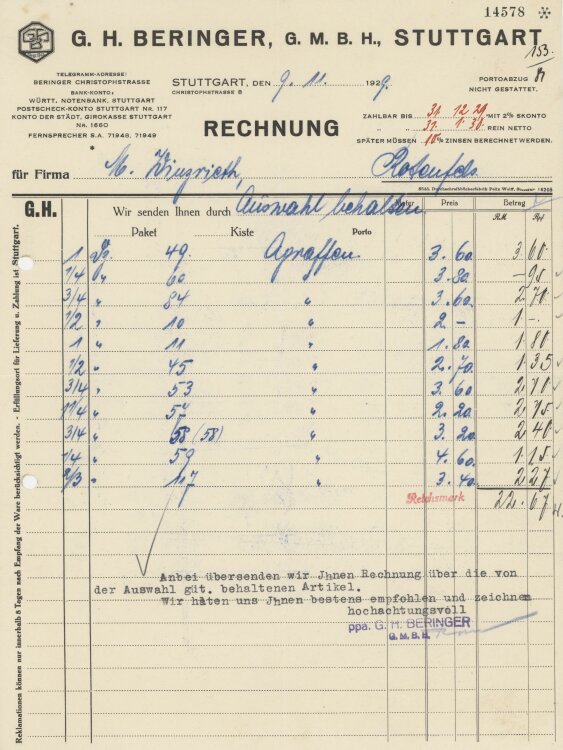 14578
G. H. BERINGER, G. M. B. H., STUTTGART
153
TELEGRAMM-ADRESSE:
BERINGER CHRISTOPHSTRASSE
BANK-KONTO:
WÜRTT. NOTENBANK, STUTTGART
POSTSCHECK-KONTO STUTTGART Nr. 117
KONTO DER STÄDT. GIROKASSE STUTTGART
Nr. 1660
FERNSPRECHER S.A. 71948, 71949
STUTTGART, DEN 9. 11. 1929.
CHRISTOPHSTRASSE 8
PORTOABZUG
NICHT GESTATTET.
RECHNUNG
ZAHLBAR BIS 31. 12. 29 MIT 2% SKONTO
" " 31. 1. 30. REIN NETTO
SPÄTER MÜSSEN 10% ZINSEN BERECHNET WERDEN.
für Firma M.
Rotenfels.
G.H.
Wir senden Ihnen durch Auswahl behalten.
Paket Kiste Porto
Meter Preis Betrag
R.M. Rpf
1 49 Agraffen 3. 60. 3 60.
1/4 " 60 " 3. 80. – 95
3/4 " 84 " 3. 60. 2 70.
1/2 " 10 " 2. – 1 –.
1 " 11 " 1. 80. 1 80
1/2 " 45 " 2. 70. 1 35
3/4 " 53 " 3. 60. 2 70
1 1/4 " 57 " 2. 20. 2 75
3/4 " 58 (58) " 3. 20. 2 40
1/4 " 59 " 4. 60. 1 15
2/3 " 117 " 3. 40. 2 27
Reichsmark 22. 67
Anbei übersenden wir Jhnen Rechnung über die von
der Auswahl güt. behaltenen Artikel.
Wir halten uns Jhnen bestens empfohlen und zeichnen
hochachtungsvoll
ppa. G. H. BERINGER
G.M.B.H.
Reklamationen können nur innerhalb 8 Tagen nach Empfang der Ware berücksichtigt werden. - Erfüllungsort für Lieferung u. Zahlung ist Stuttgart.